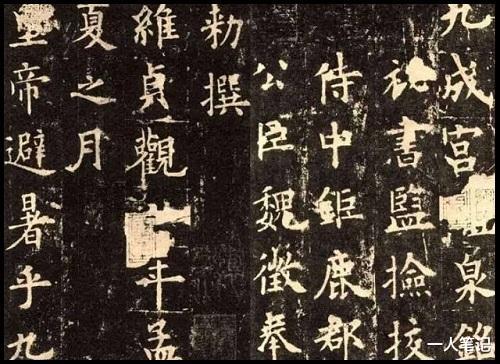 九成宮泉銘
祕書監撿挍
侍中鉅鹿郡
公臣魏徵奉
勑撰
維貞觀年孟
夏之月
皇帝避暑乎九
一人笔记